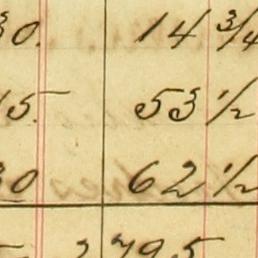 30. 14 3/4
15. 53 1/2
30 62 1/2
5 2 79 5